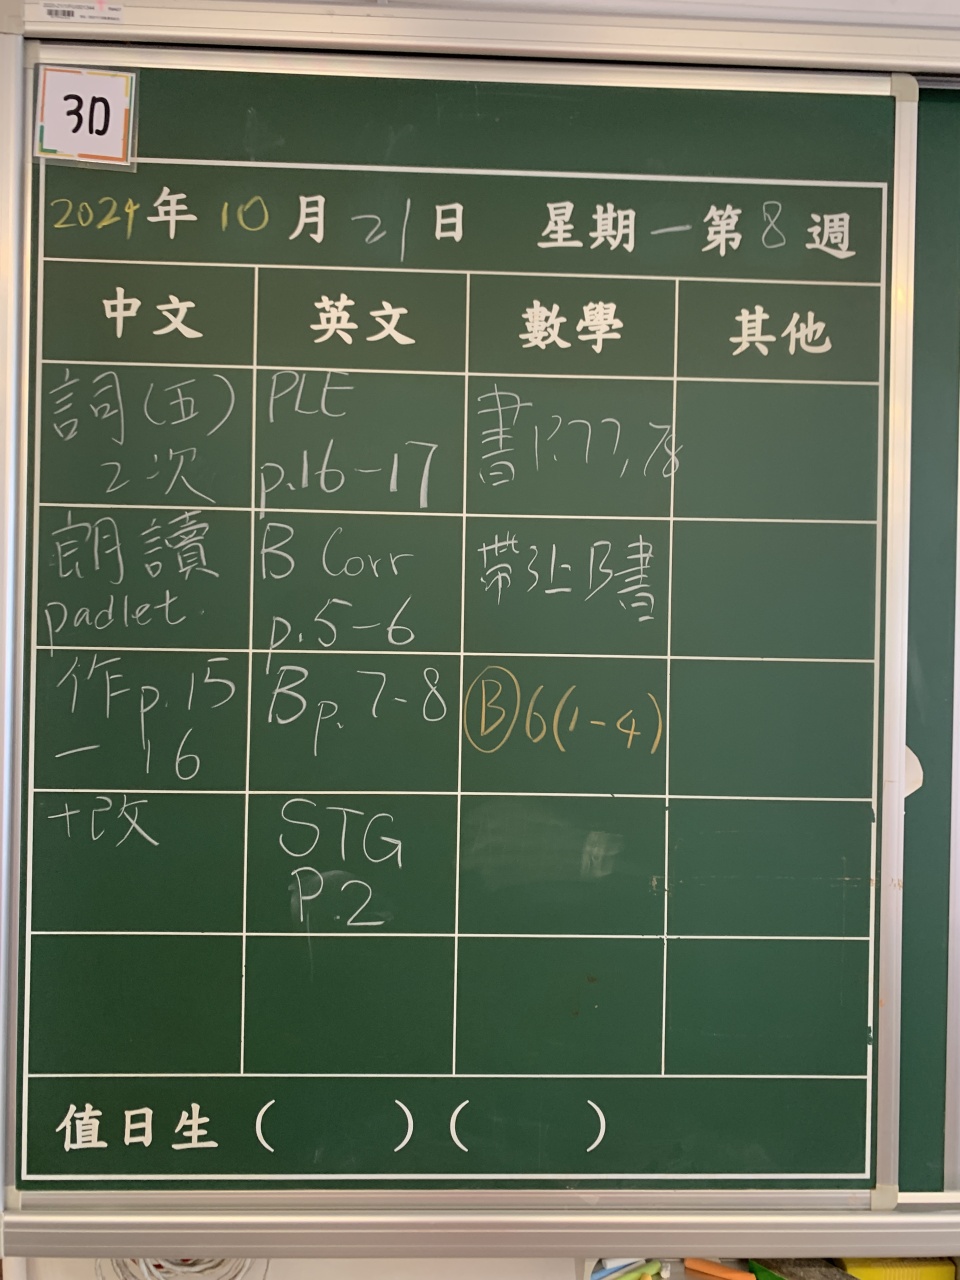 3D
2024年 10 月 21 日 星期一第 8 週
中文 英文 數學 其他
詞(五)
2次
PLE
p.16-17
書P.77,78
朗讀
padlet.
B Corr
p.5-6
帶3上B書
作p.15
-16
Bp. 7-8
Ⓑ6(1-4)
+改
STG
P.2
值日生 ( ) ( )